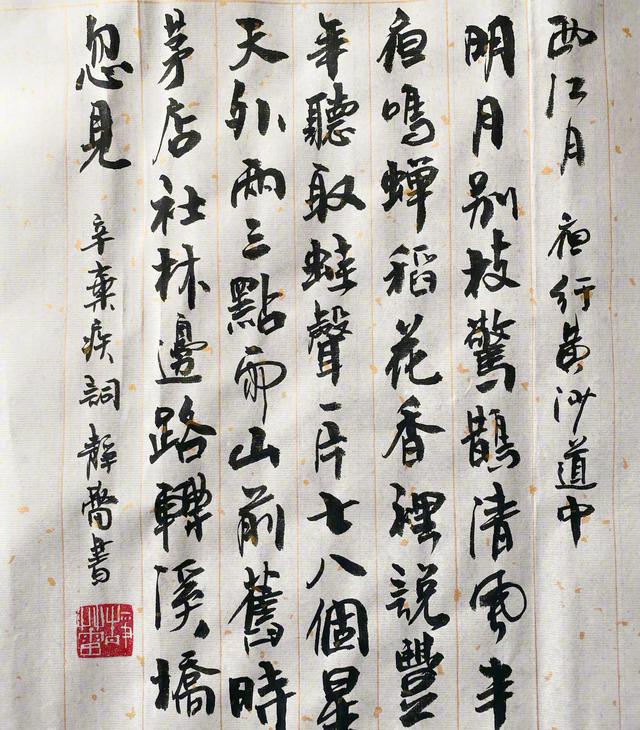 西江月 夜行黄沙道中
明月别枝驚鵲清風半
夜鳴蟬稻花香裡説豐
年聽取蛙聲一片七八個星
天外兩三點雨山前舊時
茅店社林邊路轉溪橋
忽見 辛棄疾詞 靜 書